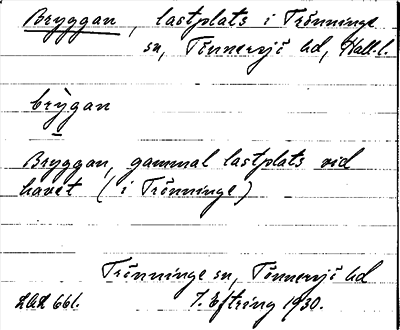 Bryggan, lastplats i Trönninge
sn, Tönnersjö hd, Hall. l.
brỳgan
Bryggan, gammal lastplats vid
havet (i Trönninge)
Trönninge sn, Tönnersjö hd
LAL 661. J. Eftring 1930.